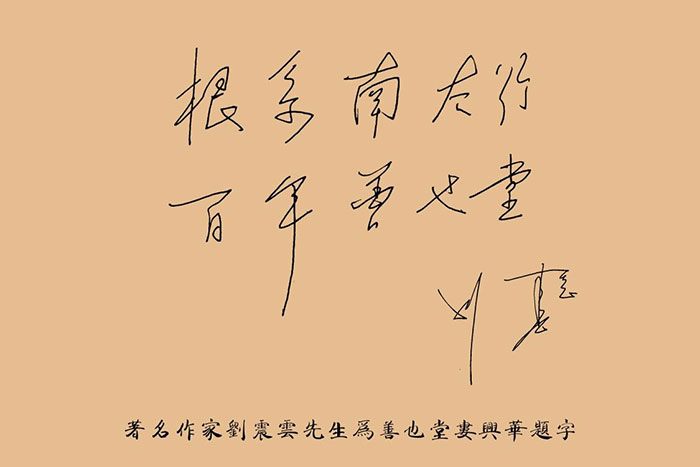 根系南太行
百年善也堂
刘震云
著名作家劉震雲先生爲善也堂婁興華題字